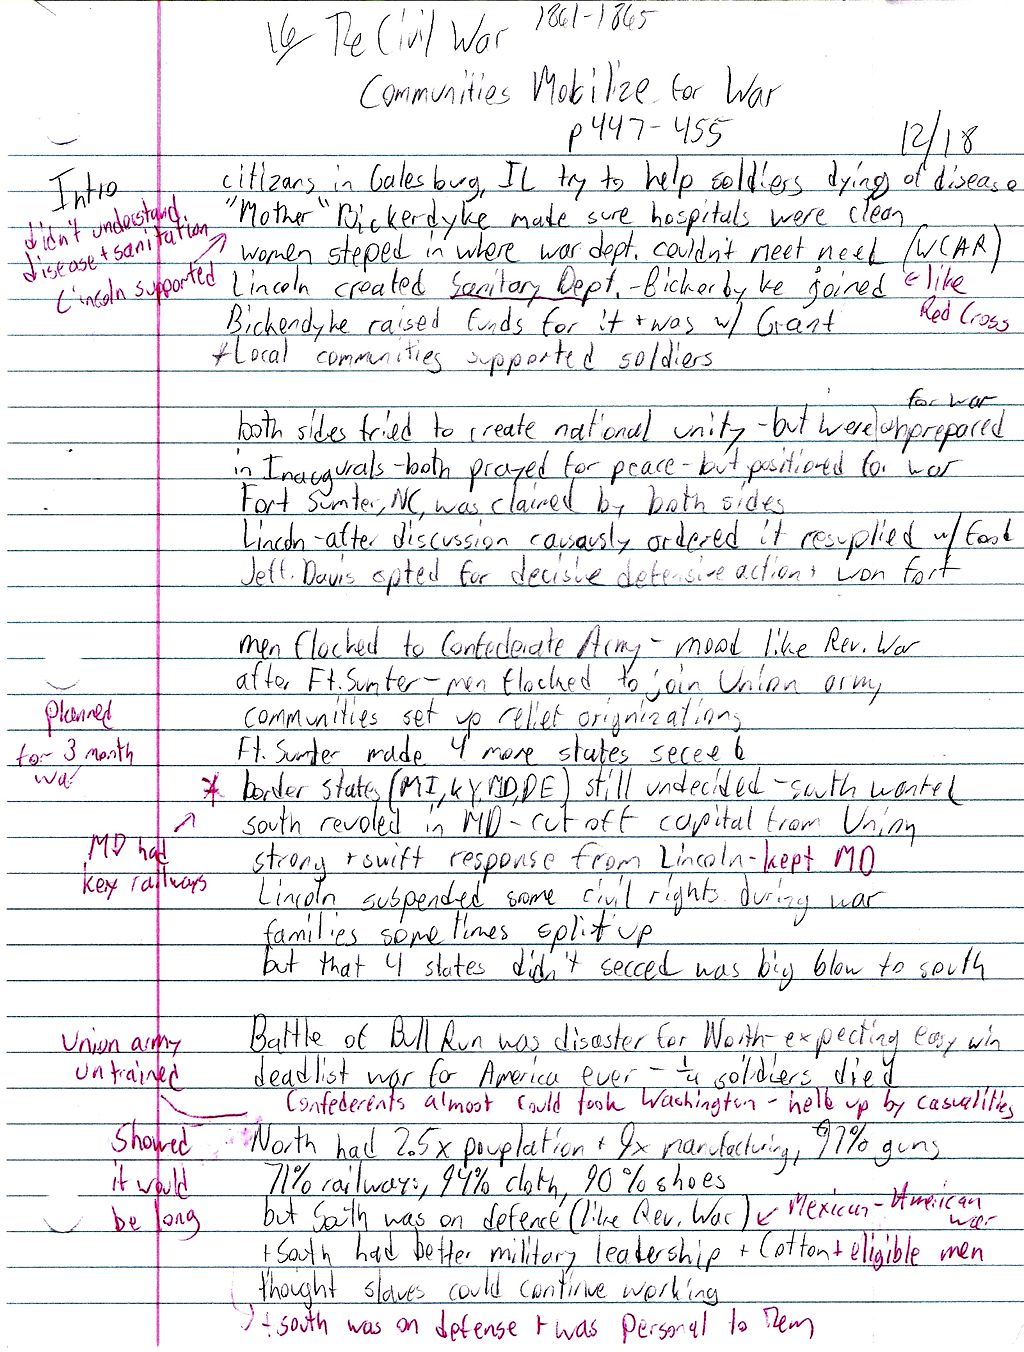 16/ The Civil War 1861-1865
Communities Mobilize for War
p447-455
12/18
Intro
citizans in Galesburg, IL try to help soldiers dying of disease
didn't understand
disease + sanitation
"Mother" Bickerdyke made sure hospitals were clean
women steped in where war dept. couldn't meet need (WCAR)
Lincoln supported
Lincoln created Sanitory Dept. - Bickerbyke joined
← like
Red Cross
Bickendyke raised funds for it + was w/ Grant
*Local communities supported soldiers
for war
both sides tried to create national unity - but were unprepared
in Inaugurals - both prayed for peace - but positioned for war
Fort Sumter, NC, was claimed by both sides
Lincoln - after discussion causously ordered it resuplied w/ food
Jeff. Davis opted for decisive defensive action + won fort
men flocked to Confederate Army - mood like Rev. War
after Ft. Sumter - men flocked to join Union army
communities set up relief orignizations
Planned
for 3 month
war
Ft. Sumter made 4 more states seceed
* border states (MI, KY, MD, DE) still undecided - south wanted
south revoled in MD - cut off capital from Union
MD had
key railways
strong + swift response from Lincoln - kept MD
Lincoln suspended some civil rights during war
families sometimes split up
but that 4 states didn't secced was big blow to south
Union army
untrained
Battle of Bull Run was disaster for North - expecting easy win
deadlist war for America ever - 1/4 soldiers died
Confederents almost could took Washington - held up by casualities
Showed
it would
be long
North had 2.5x pouplation + 9x manufacturing, 97% guns
71% railways, 94% cloth, 90% shoes
but South was on defence (like Rev. War) ↙ Mexican-American
war
+ South had better military leadership + Cotton + eligible men
thought slaves could continue working
+ south was on defense + was personal to them